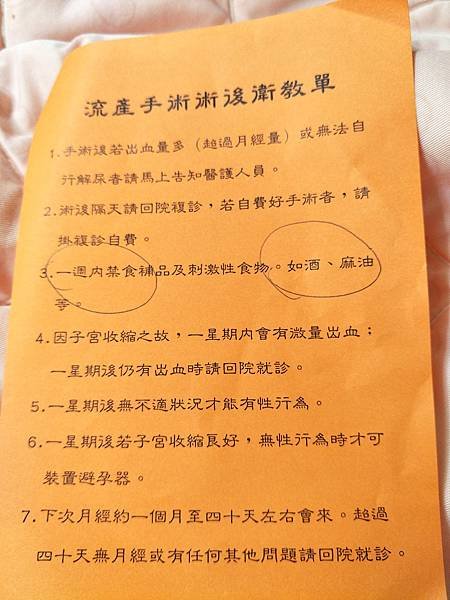 流產手術術後衛教單
1.手術後若出血量多（超過月經量）或無法自
行解尿者請馬上告知醫護人員。
2.術後隔天請回院複診，若自費好手術者，請
掛複診自費。
3.一週內禁食補品及刺激性食物。如酒、麻油
等。
4.因子宮收縮之故，一星期內會有微量出血；
一星期後仍有出血時請回院就診。
5.一星期後無不適狀況才能有性行為。
6.一星期後若子宮收縮良好，無性行為時才可
裝置避孕器。
7.下次月經約一個月至四十天左右會來。超過
四十天無月經或有任何其他問題請回院就診。